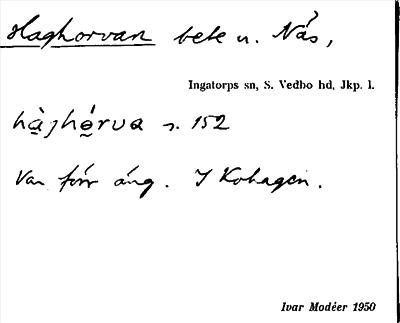 Haghorvan bete u. Näs,
Ingatorps sn, S. Vedbo hd, Jkp. l.
s. 152
Var förr äng. I Kohagen.
Ivar Modéer 1950